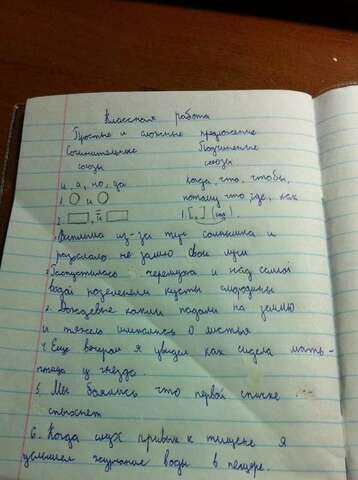 Классная работа
Простые и сложные предложение
Сочинительные Подчиненные
союзы союзы
и, а, но, да когда, что, чтобы,
1. О и О потому что, где, как
2. , и 1. [ , ] (как)
Выплыла из-за туч солнышка и
разослало на землю свои лучи
Распустилась черемуха и над самой
водой розеленели кусты смородины
2. Дождевые капли падали на землю
и тяжело шлепались о листья
4. Еще вечером я увидел как сидела мать-
птица у гнезда.
5. Мы боялись что первой спичке
спыснет
6. Когда слух привык к тишине я
услышем журчание воды в пещере.